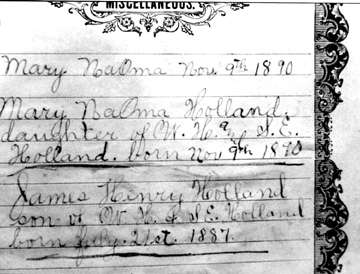 MISCELLANEOUS.
Mary NaOma Nov 9th 1890
Mary NaOma Holland
daughter of W. H. & S. E.
Holland. born Nov 9th 1890
James Henry Holland
son of W. H. & S. E. Holland
born July. 21st. 1887.